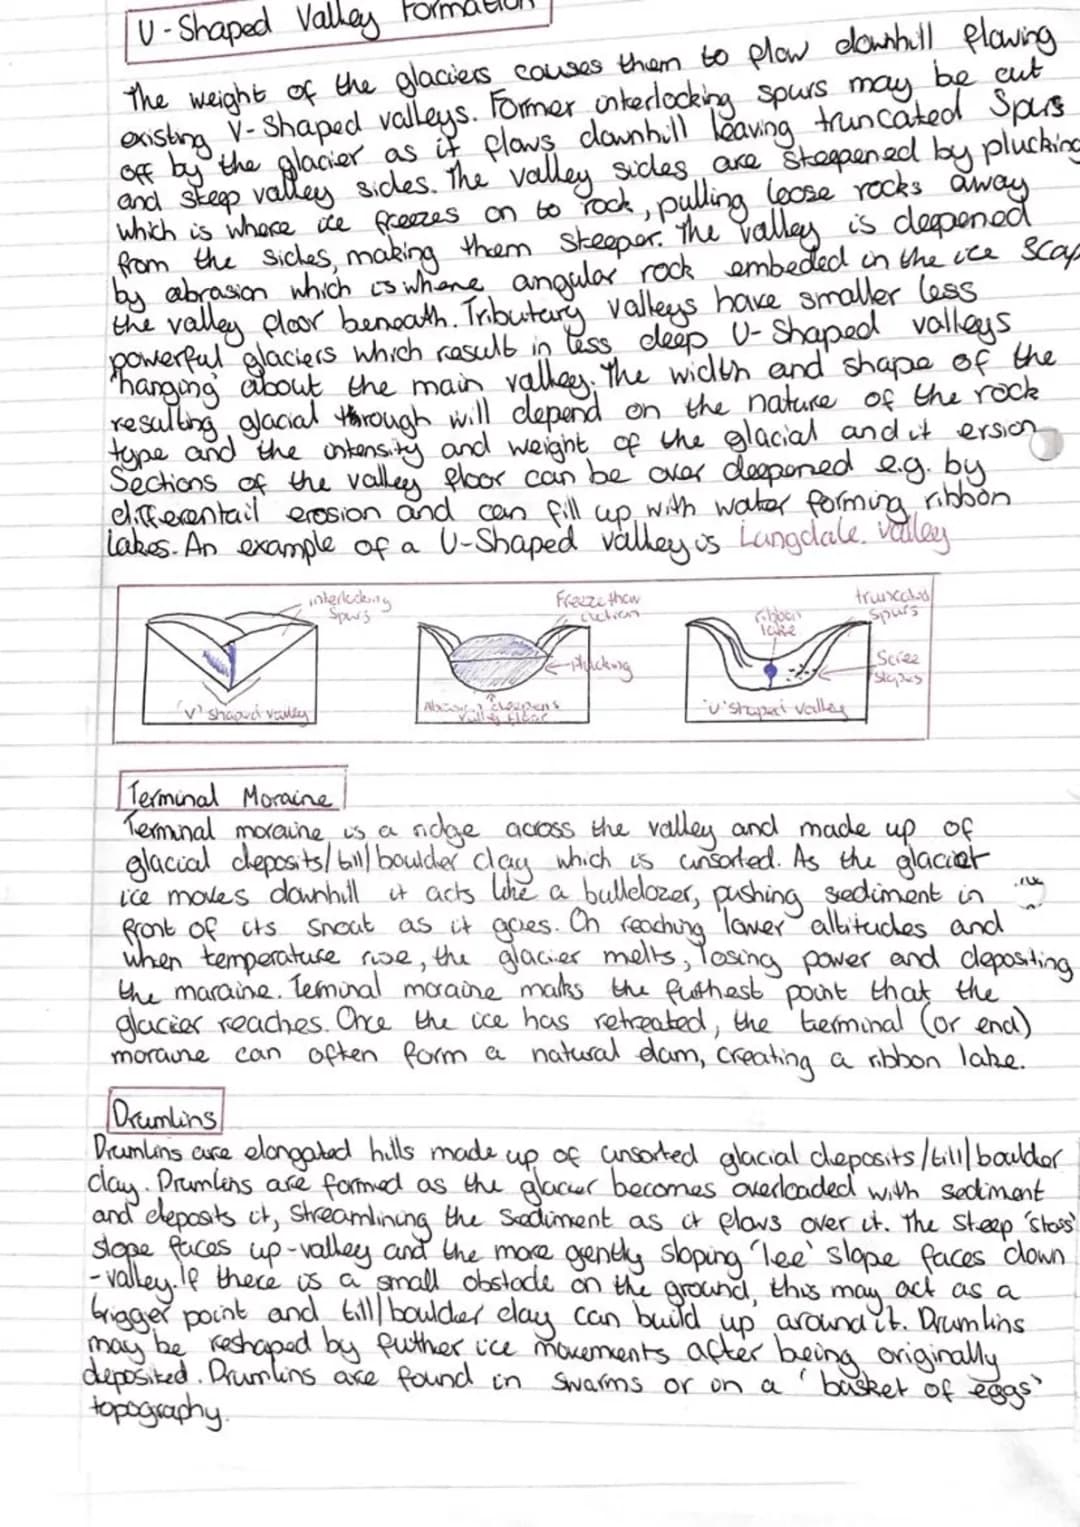 U-Shaped Valley Formation
The weight of the glaciers causes them to flow downhill flowing
existing V-Shaped valleys. Former interlocking spurs may be cut
off by the glacier as it flows downhill leaving truncated Spurs
and steep valley sides. The valley sides are steepened by plucking
which is where ice freezes on to rock, pulling loose rocks away
from the sides, making them steeper. The valley is deepened
by abrasion which is where angular rock embeded in the ice Scap
the valley floor beneath. Tributary valleys have smaller less
powerful glaciers which result in less deep U-Shaped valleys
'hanging' about the main valley. The width and shape of the
resulting glacial through will depend on the nature of the rock
type and the intensity and weight of the glacial and it ersion
Sections of the valley floor can be over deepened e.g. by
differentail erosion and can fill up with water forming ribbon
lakes. An example of a U-Shaped valley is Langdale valley
interlocking
Spurs
'V' shaped valley
Freeze thaw
action
Plucking
deepens
valley floor
ribbon
lake
truncated
Spurs
Scree
slopes
'U' shaped valley
Terminal Moraine
Terminal moraine is a ridge across the valley and made up of
glacial deposits/till/boulder clay which is unsorted. As the glacier
ice moves downhill it acts like a bulldozer, pushing sediment in
front of its snout as it goes. On reaching lower altitudes and
when temperature rise, the glacier melts, losing power and depositing
the moraine. Teminal moraine maks the futhest point that the
glacier reaches. Once the ice has retreated, the terminal (or end)
moraine can often form a natural dam, creating a ribbon lake.
Drumlins
Drumlins are elongated hills made up of unsorted glacial deposits/till/boulder
clay. Drumlins are formed as the glacier becomes overloaded with sediment
and deposits it, streamlining the sediment as it flows over it. The steep 'stoss'
slope faces up-valley and the more gently sloping 'lee' slope faces down
-valley. If there is a small obstacle on the ground, this may act as a
trigger point and till/boulder clay can build up around it. Drumlins
may be reshaped by futher ice movements after being originally
deposited. Drumlins are found in swarms or on a 'basket of eggs'
topography.